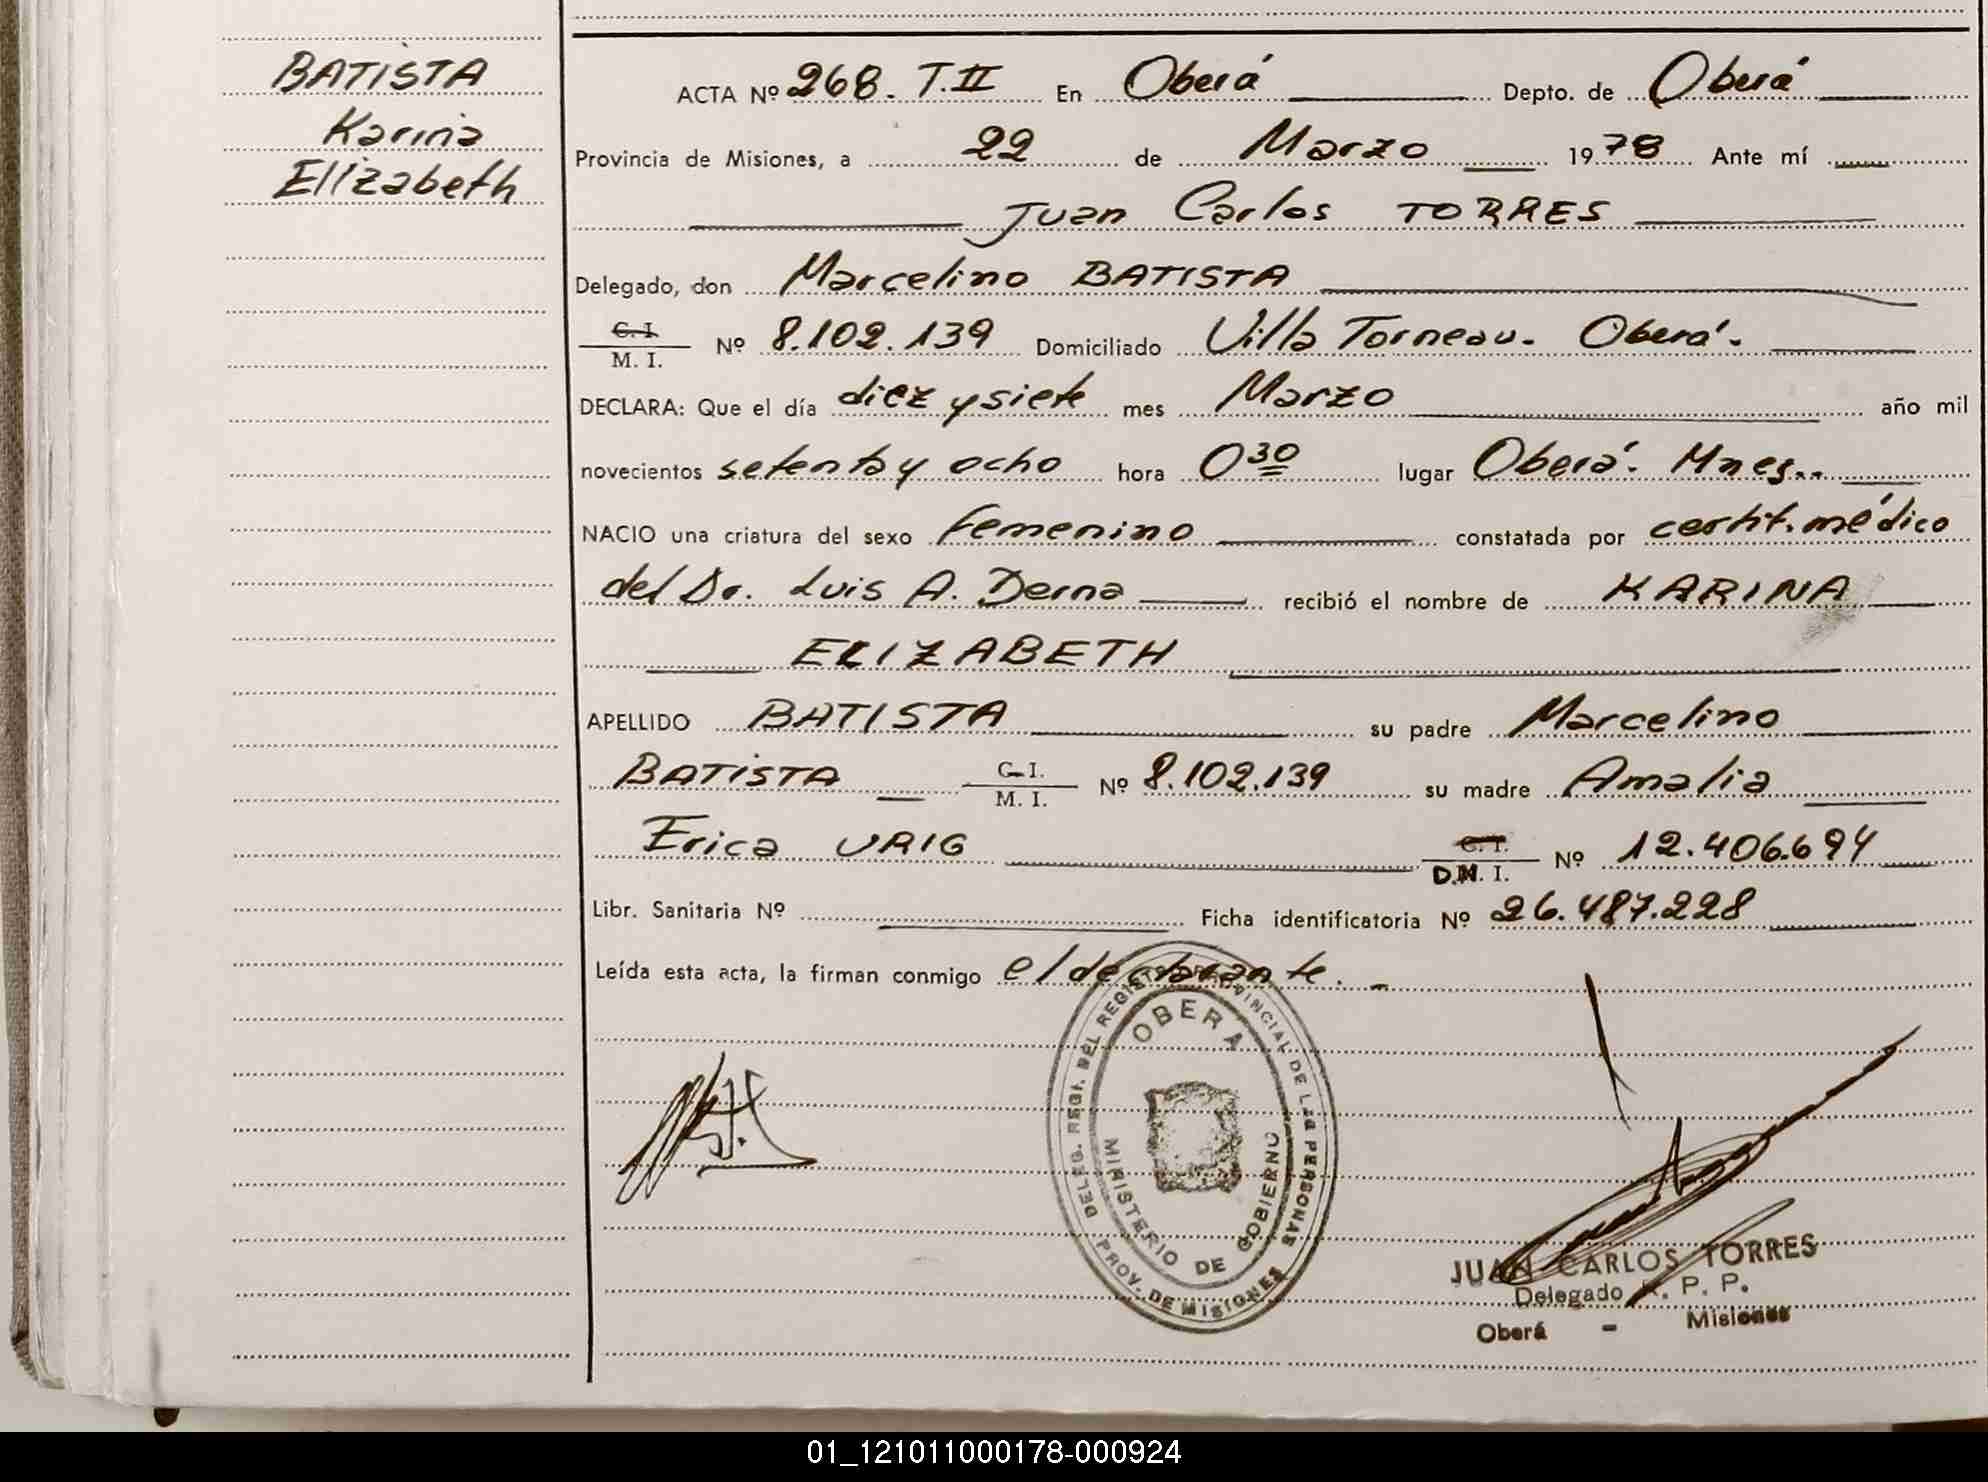 BATISTA
Karina
Elizabeth
ACTA Nº 268. T.II En Oberá Depto. de Oberá
Provincia de Misiones, a 22 de Marzo 1978 Ante mí
Juan Carlos TORRES
Delegado, don Marcelino BATISTA
C. I.
M. I. Nº 8.102.139 Domiciliado Villa Torneau. Oberá.
DECLARA: Que el día diez y siete mes Marzo año mil
novecientos setenta y ocho hora 0 30 lugar Oberá. Mnes..
NACIO una criatura del sexo femenino constatada por certif. médico
del Dr. Luis A. Derna recibió el nombre de KARINA
ELIZABETH
APELLIDO BATISTA su padre Marcelino
BATISTA C. I.
M. I. Nº 8.102.139 su madre Amalia
Erica URIG C. I.
D.N. I. Nº 12.406.694
Libr. Sanitaria Nº Ficha identificatoria Nº 26.487.228
Leída esta acta, la firman conmigo el declarante.
DELEG. REGI. DEL REGISTRO PROVINCIAL DE LAS PERSONAS
OBERA
MINISTERIO DE GOBIERNO
PROV. DE MISIONES
JUAN CARLOS TORRES
Delegado R. P. P.
Oberá - Misiones
01_121011000178-000924